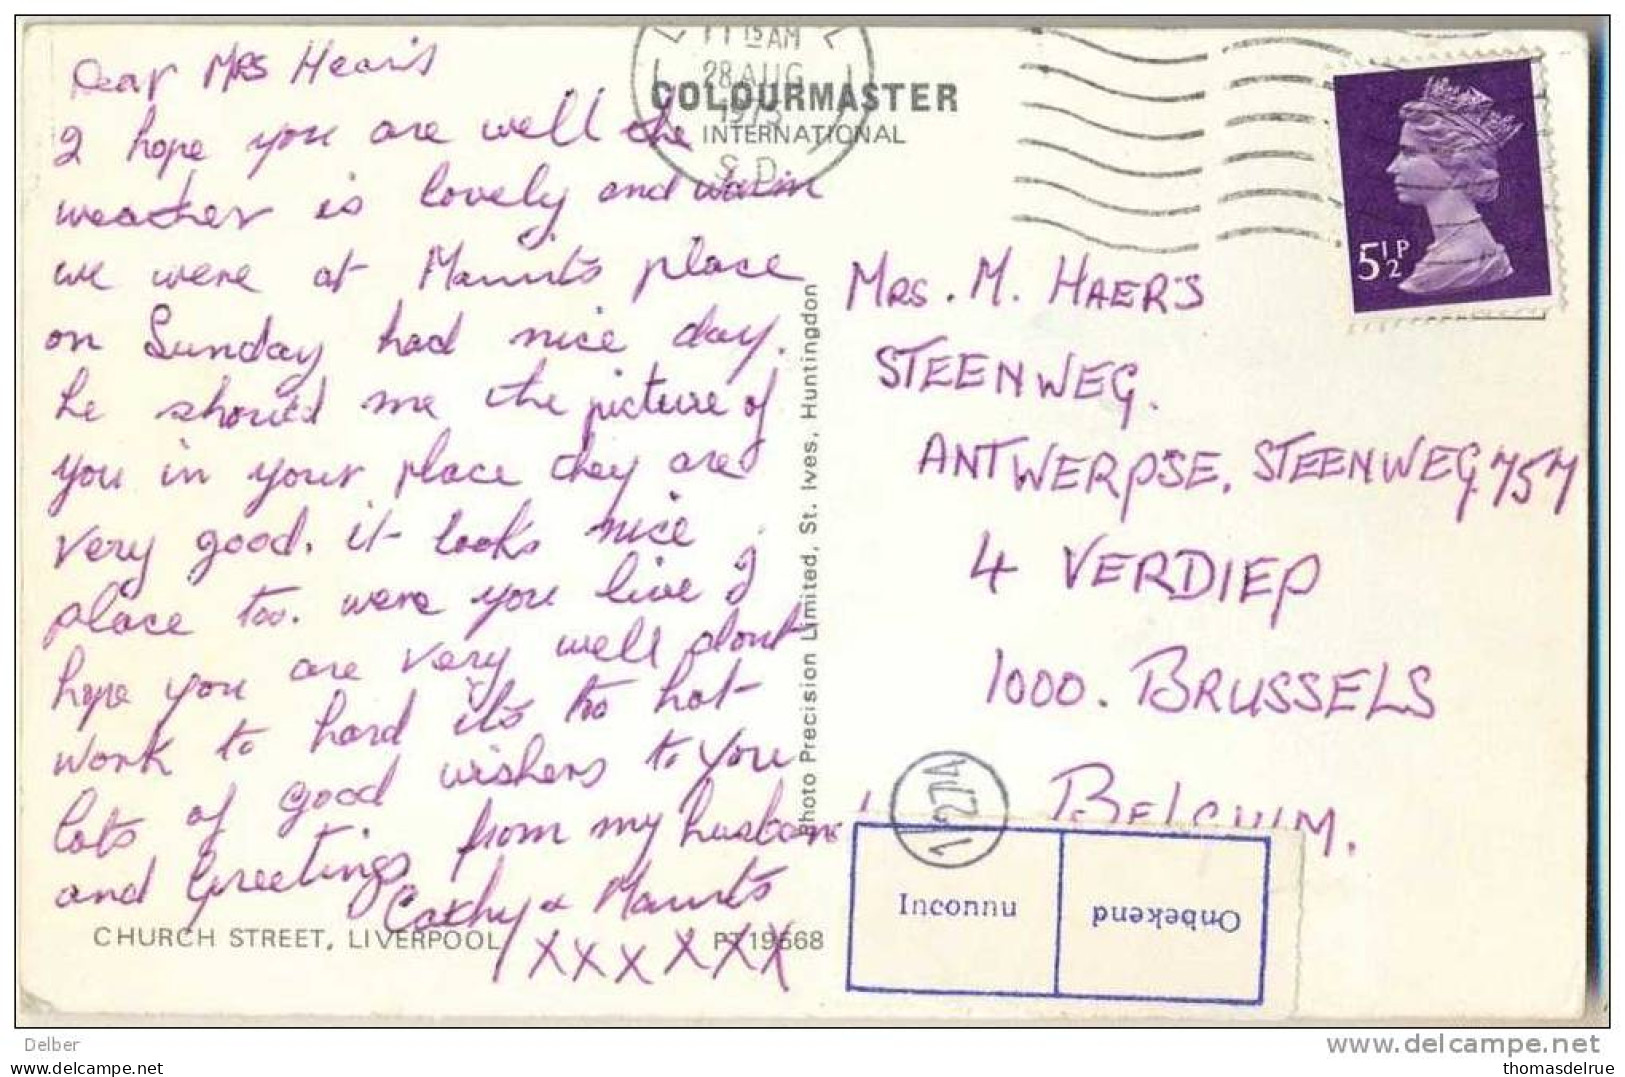 Dear MRS Hears
I hope you are well the
weather is lovely and warm
we were at Maurits place
on Sunday had nice day.
he should me the picture of
you in your place they are
very good. it looks nice
place too. were you live I
hope you are very well dont
work to hard its too hot
lots of good wishers to you
and Greetings from my husband
Cathy & Maurits
xxxxxxx
CHURCH STREET, LIVERPOOL
PT19568
11 15 AM
28 AUG
1973
S.D.
COLOURMASTER
INTERNATIONAL
Photo Precision Limited, St. Ives, Huntingdon
5½P
MRS. M. HAER'S
STEENWEG.
ANTWERPSE. STEENWEG 757
4 VERDIEP
1000. BRUSSELS
BELGIUM.
Inconnu
Onbekend
Delber
www.delcampe.net
thomasdelrue